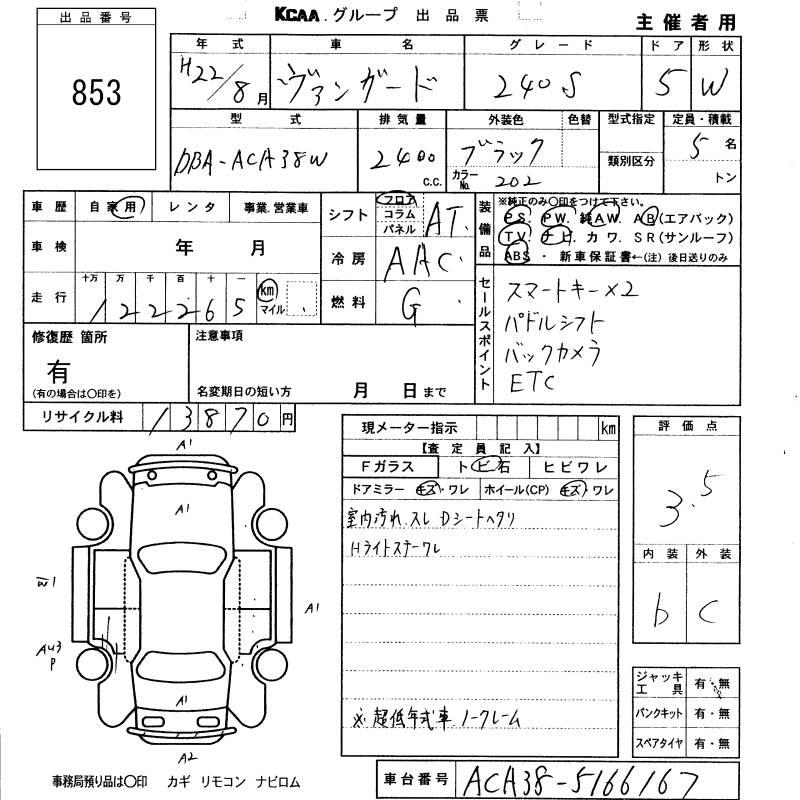 KCAA.グループ 出品票
主催者用
出品番号
853
年式 車名 グレード ドア 形状
H22/8月 ヴァンガード 240S 5 W
型式 排気量 外装色 色替 型式指定 定員・積載
DBA-ACA38W 2400 c.c. ブラック 5名
カラーNo. 202 類別区分 トン
車歴 自家用 レンタ 事業.営業車
シフト フロア コラム パネル AT.
装備品 ※純正のみ○印をつけて下さい。
PS. PW. 純AW. AB(エアバック)
TV. ナビ. カワ. SR(サンルーフ)
ABS ・ 新車保証書←(注)後日送りのみ
車検 年 月
冷房 AAC.
走行 十万 万 千 百 十 一
122265 km マイル
燃料 G.
セールスポイント
スマートキー×2
パドルシフト
バックカメラ
ETC
修復歴 箇所
有
(有の場合は○印を)
注意事項
名変期日の短い方 月 日まで
リサイクル料 13870円
現メーター指示 km
【査定員記入】
Fガラス トビ石 ヒビワレ
ドアミラー キズ・ワレ ホイール(CP) キズ・ワレ
室内汚れ.スレ Dシートヘタリ
Hライトステーワレ
※超低年式車 ノークレーム
評価点
3.5
内装 外装
b C
ジャッキ工具 有・無
パンクキット 有・無
スペアタイヤ 有・無
A1
A1
W1
A1
AU3
P
A1
A2
事務局預り品は○印 カギ リモコン ナビロム
車台番号 ACA38-5166167